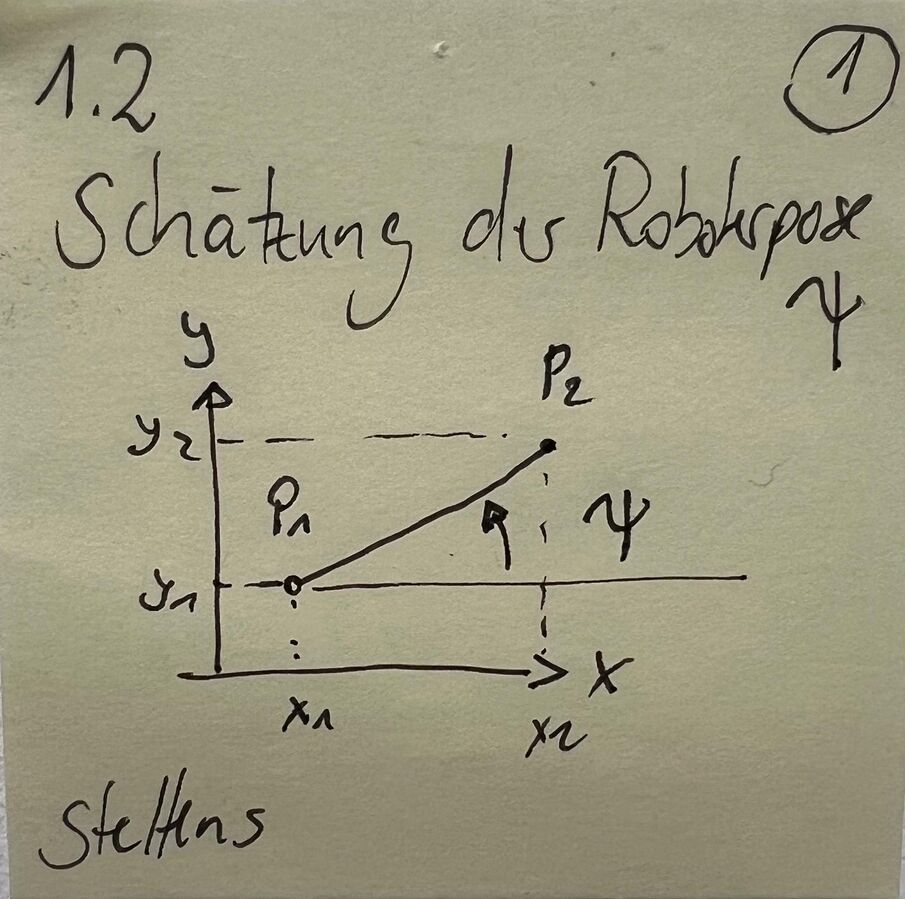 1.2
1
Schätzung der Roboterpose
ψ
y
P2
y2
P1
ψ
y1
x
x1
x2